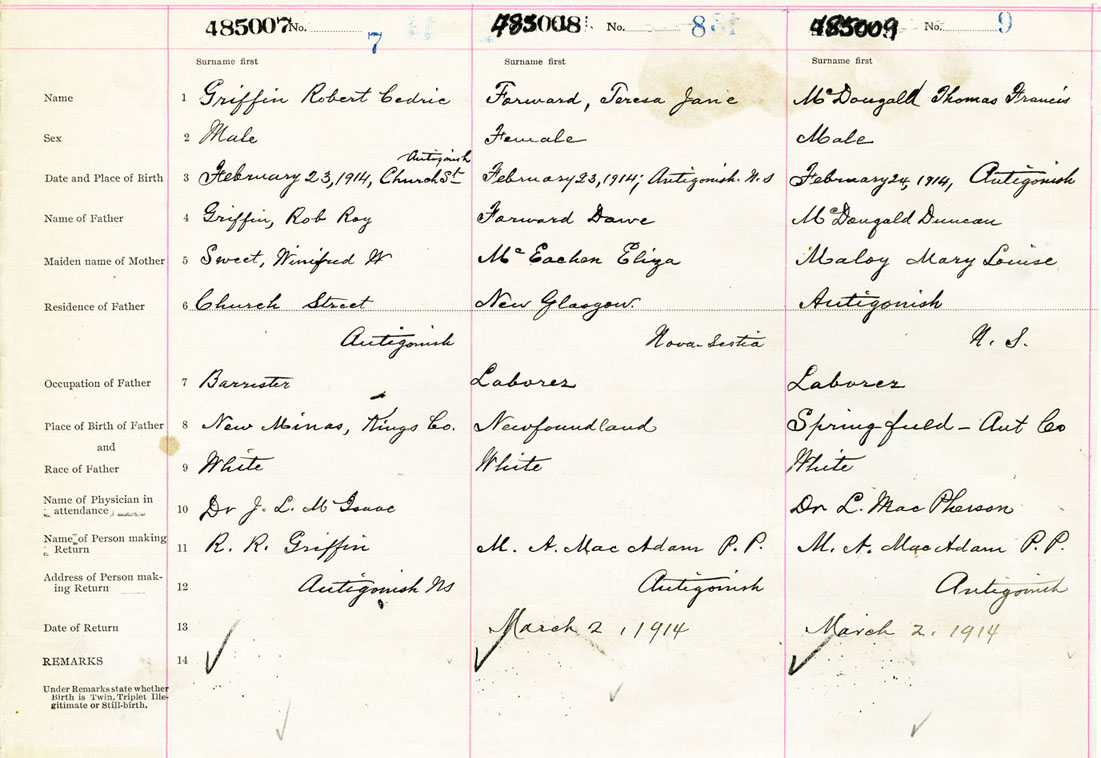 485007 No. 7 485008 No. 8 485009 No. 9
Surname first Surname first Surname first
Name 1 Griffin Robert Cedric Forward, Teresa Jane McDougald Thomas Francis
Sex 2 Male Female Male
Antigonish
Date and Place of Birth 3 February 23, 1914, Church St February 23, 1914; Antigonish. N.S February 24, 1914, Antigonish
Name of Father 4 Griffin, Rob Roy Forward Dawe McDougald Duncan
Maiden name of Mother 5 Sweet, Winifred W McEachen Eliza Maloy Mary Louise
Residence of Father 6 Church Street New Glasgow. Antigonish
Antigonish Nova-Scotia N. S.
Occupation of Father 7 Barrister Laborer Laborer
Place of Birth of Father 8 New Minas, Kings Co. Newfoundland Springfield - Ant Co
and
Race of Father 9 White White White
Name of Physician in
attendance 10 Dr J. L. McIsaac Dr L. MacPherson
Name of Person making
Return 11 R. R. Griffin M. A. MacAdam P. P. M. A. MacAdam P. P.
Address of Person mak-
ing Return 12 Antigonish NS Antigonish Antigonish
Date of Return 13 March 2, 1914 March 2, 1914
REMARKS 14
Under Remarks state whether
Birth is Twin, Triplet Ille-
gitimate or Still-birth.